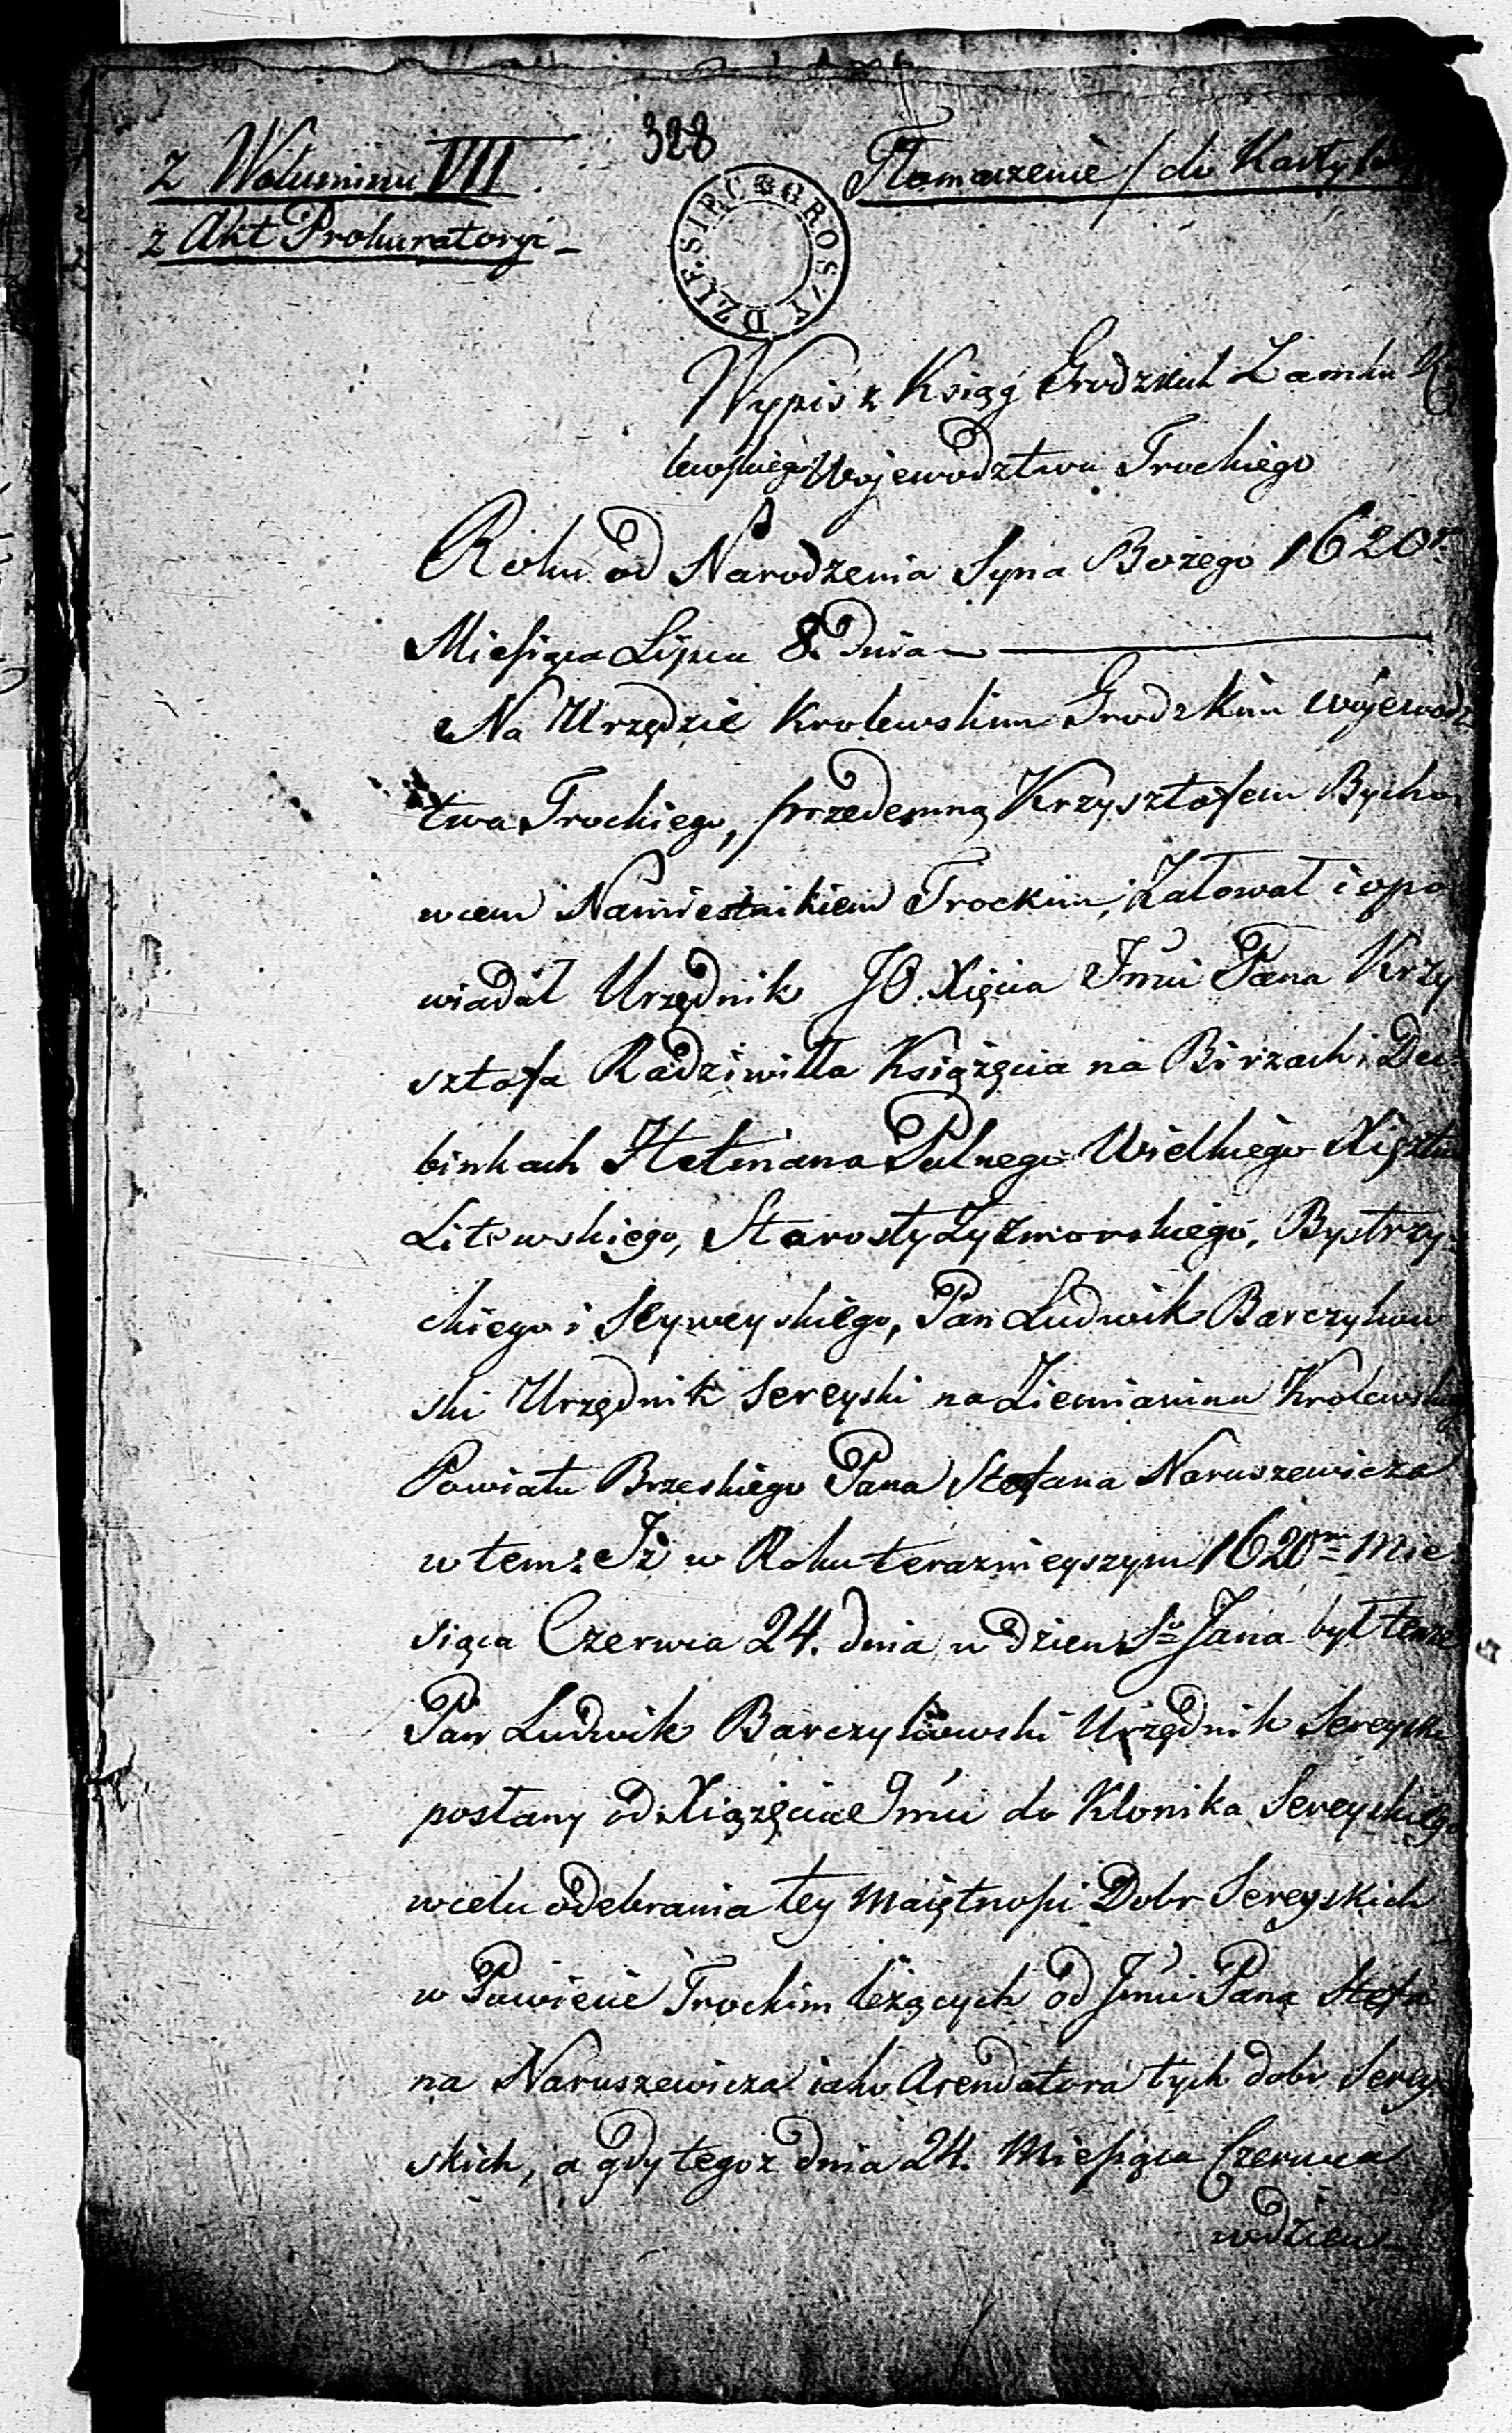 z Woluminu VII
328
Tłomaczenie / do Karty
z Akt Prokuratoryi –
DZIESIĘĆ GROSZY
Wypis z Xsiąg Grodzkich Zamku
lewskiego Województwa Trockiego
Roku od Narodzenia Syna Bożego 1620 r.
Miesiąca Lipca 8. Dnia
Na Urzędzie Krolewskim Grodzkim wojewodz
twa Trockiego, przedemną Krzysztofem Bycho
wcem Namiestnikiem Trockim, Załował i opo
wiadał Urzędnik JO. Xięcia Jmci Pana Krzy
sztofa Radziwiłła Książęcia na Birżach i Du
binkach Hetmana Polnego Wielkiego Xięztwa
Litewskiego, Starosty Zyżmorskiego, Bystrzy
ckiego i Seyweyskiego, Pan Ludwik Barczykow
ski Urzędnik Sereyski na Ziemianina Krolewskiego
Powiatu Brzeskiego Pana Stefana Naruszewicza
w tem: Iż w Roku teraznieyszym 1620m Mie
siąca Czerwca 24. dnia, w dzien So Jana był tenże
Pan Ludwik Barczykowski Urzędnik Sereyski
posłany od Xiążęcia Jmci do Klonika Sereyskiego
w celu odebrania tey Maiętnosci Dobr Sereyskich
w Powiecie Trockim leżących od Jmci Pana Stefa
na Naruszewicza iako Arendatora tych dobr Serey
skich, a gdy tegoż dnia 24. Miesiąca Czerwca
w dzien